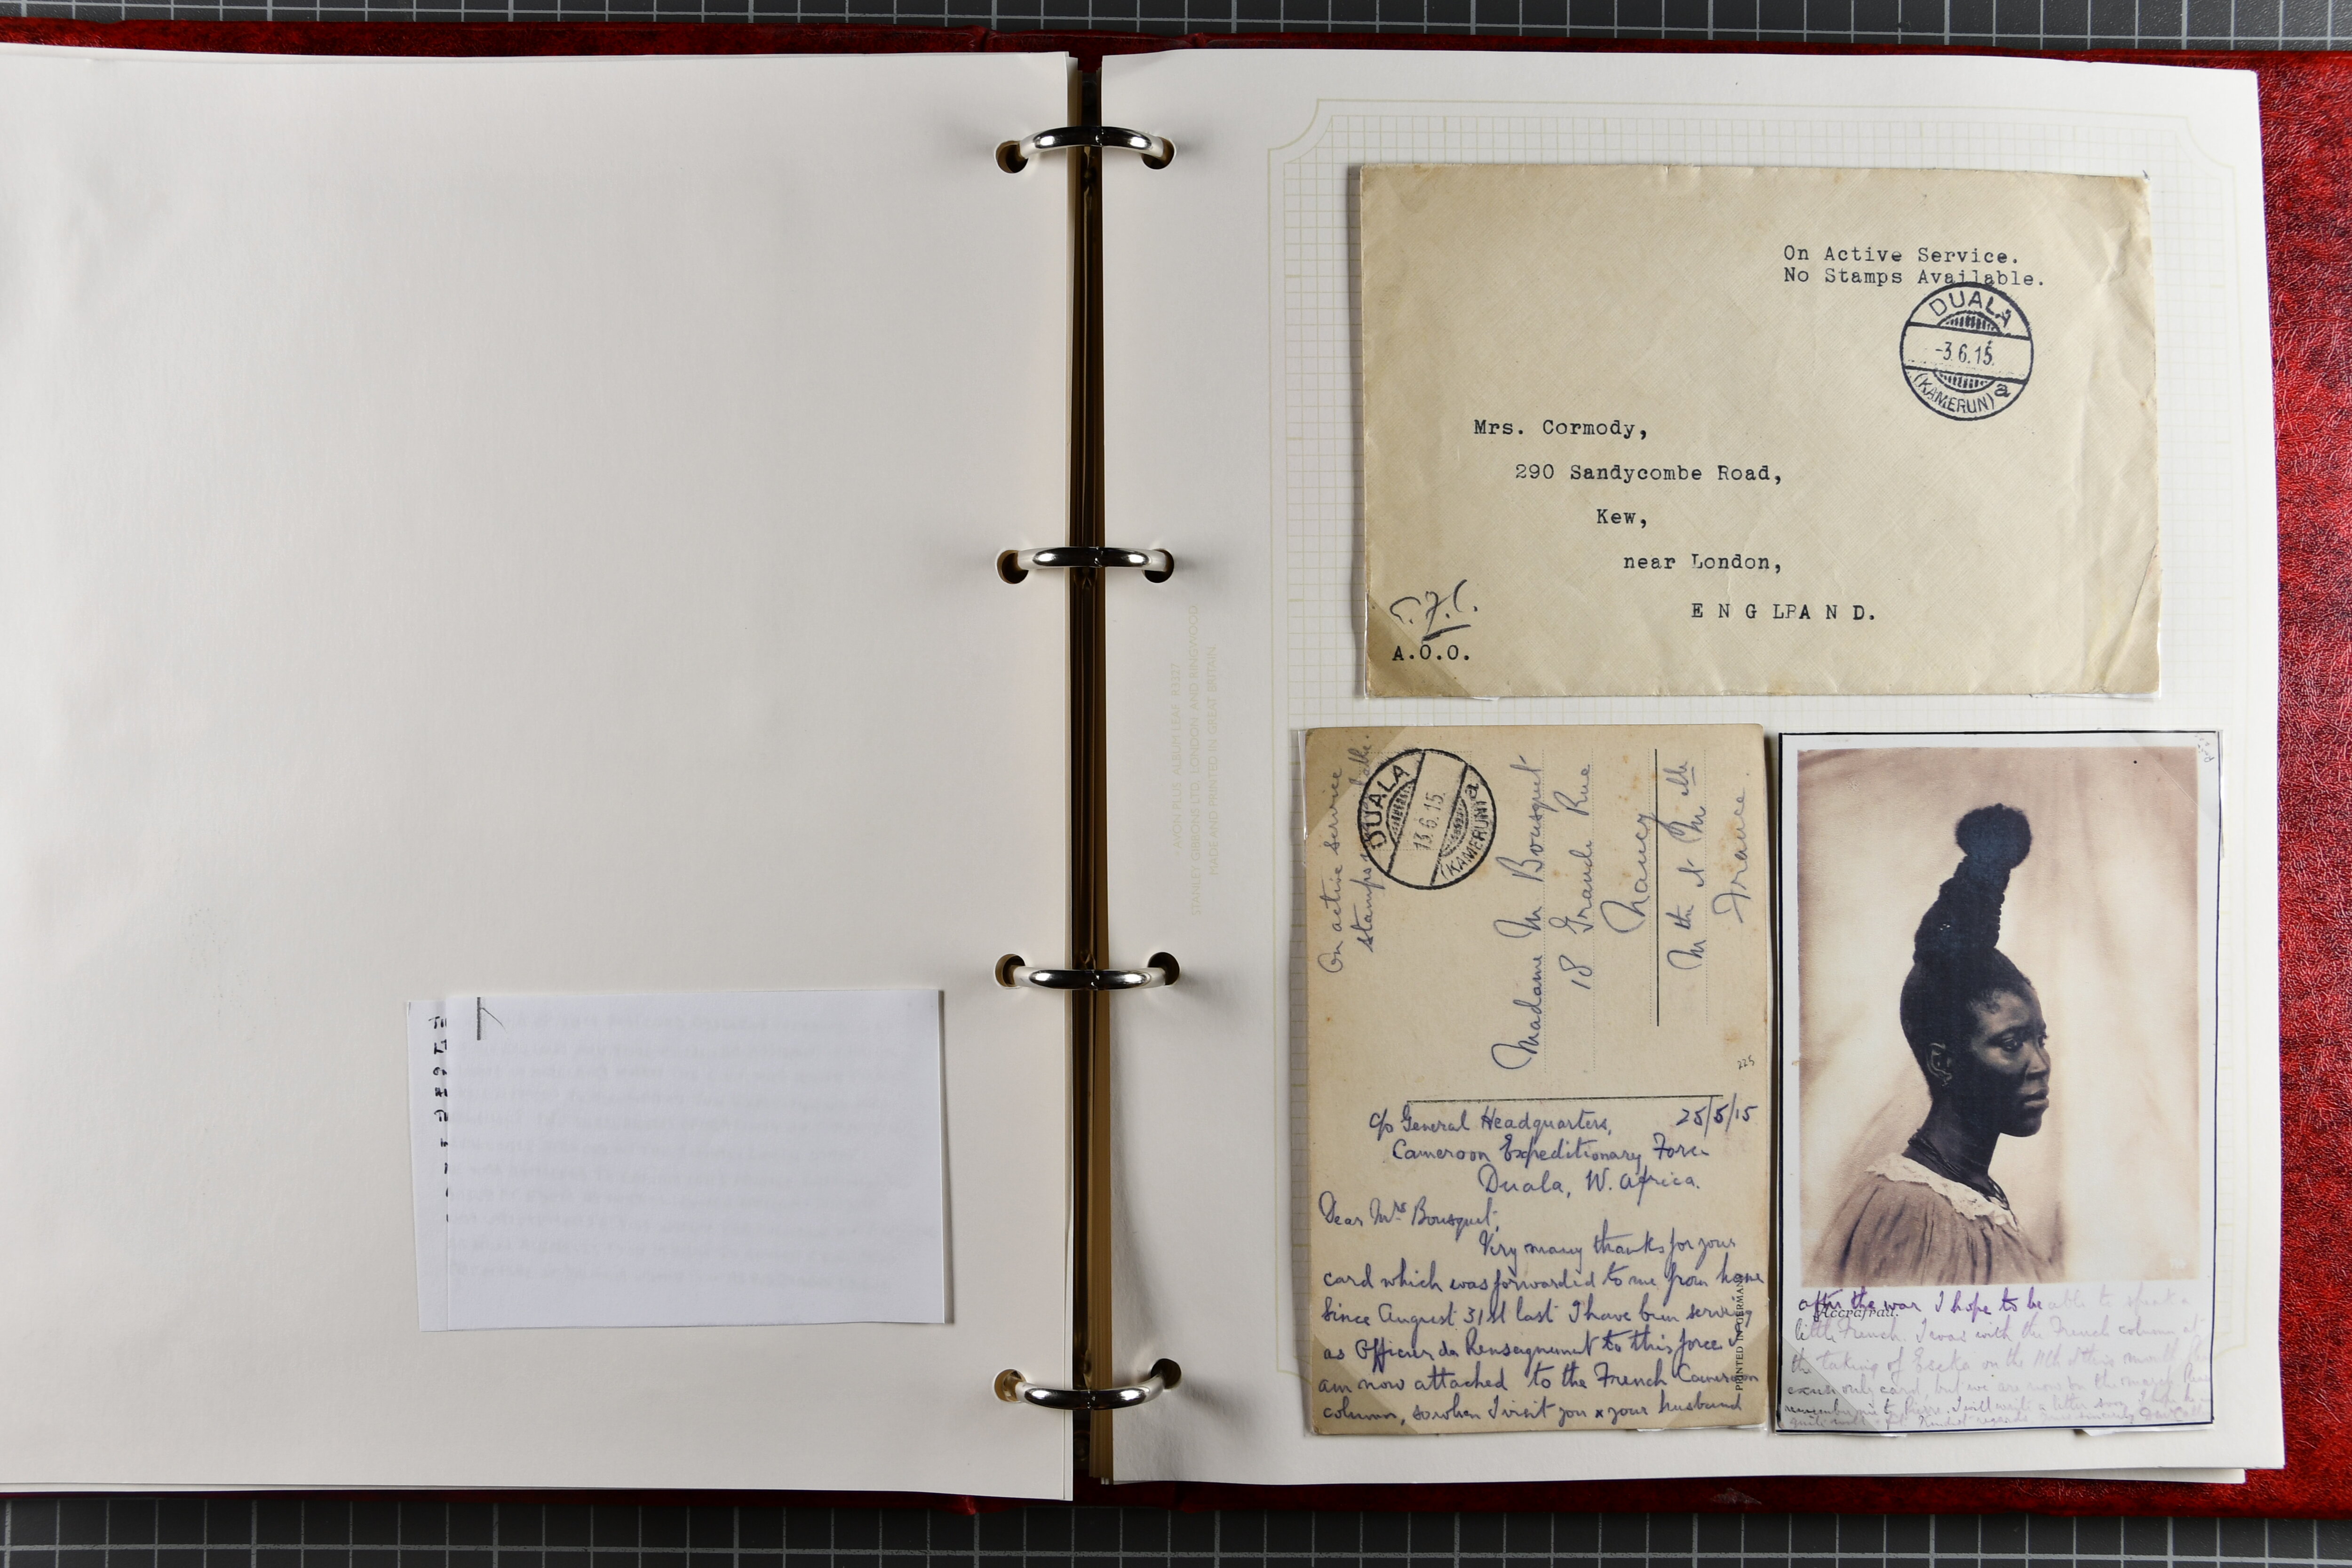 On Active Service.
No Stamps Available.
DUALA
-3.6.15.
(KAMERUN) a
Mrs. Cormody,
290 Sandycombe Road,
Kew,
near London,
E N G LPA N D.
A.O.O.
AVON PLUS ALBUM LEAF R3327
STANLEY GIBBONS LTD. LONDON AND RINGWOOD
MADE AND PRINTED IN GREAT BRITAIN
On active service
stamps
DUALA
13.6.15.
(KAMERUN) a
Madame M Bousquet
18 Grande Rue
Nancy
M the et M elle
France
225
c/o General Headquarters, 25/5/15
Cameroon Expeditionary Force
Duala, W. Africa.
Dear Mrs Bousquet,
Very many thanks for your
card which was forwarded to me from home
Since August 31st last I have been serving
as Officier de Renseignement to this force I
am now attached to the French Cameroon
column, so when I visit you & your husband
PRINTED IN GERMANY
after the war I hope to be able to speak a
Accrafrau.
little French. I was with the French column at
the taking of Eseka on the 11th of this month
excuse only card, but we are now on the march
remember me to Pierre. I will write a letter soon, I
quite well Kindest regards